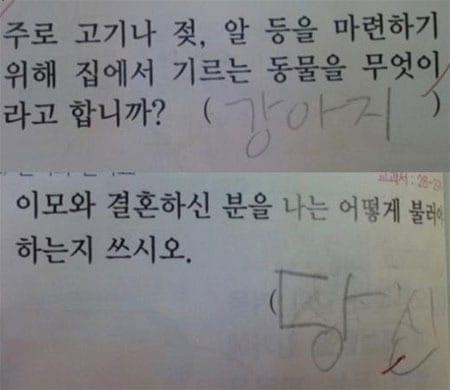 주로 고기나 젖, 알 등을 마련하기
위해 집에서 기르는 동물을 무엇이
라고 합니까? ( 강아지 )
교과서 : 28-
이모와 결혼하신 분을 나는 어떻게 불러야
하는지 쓰시오.
( 당신